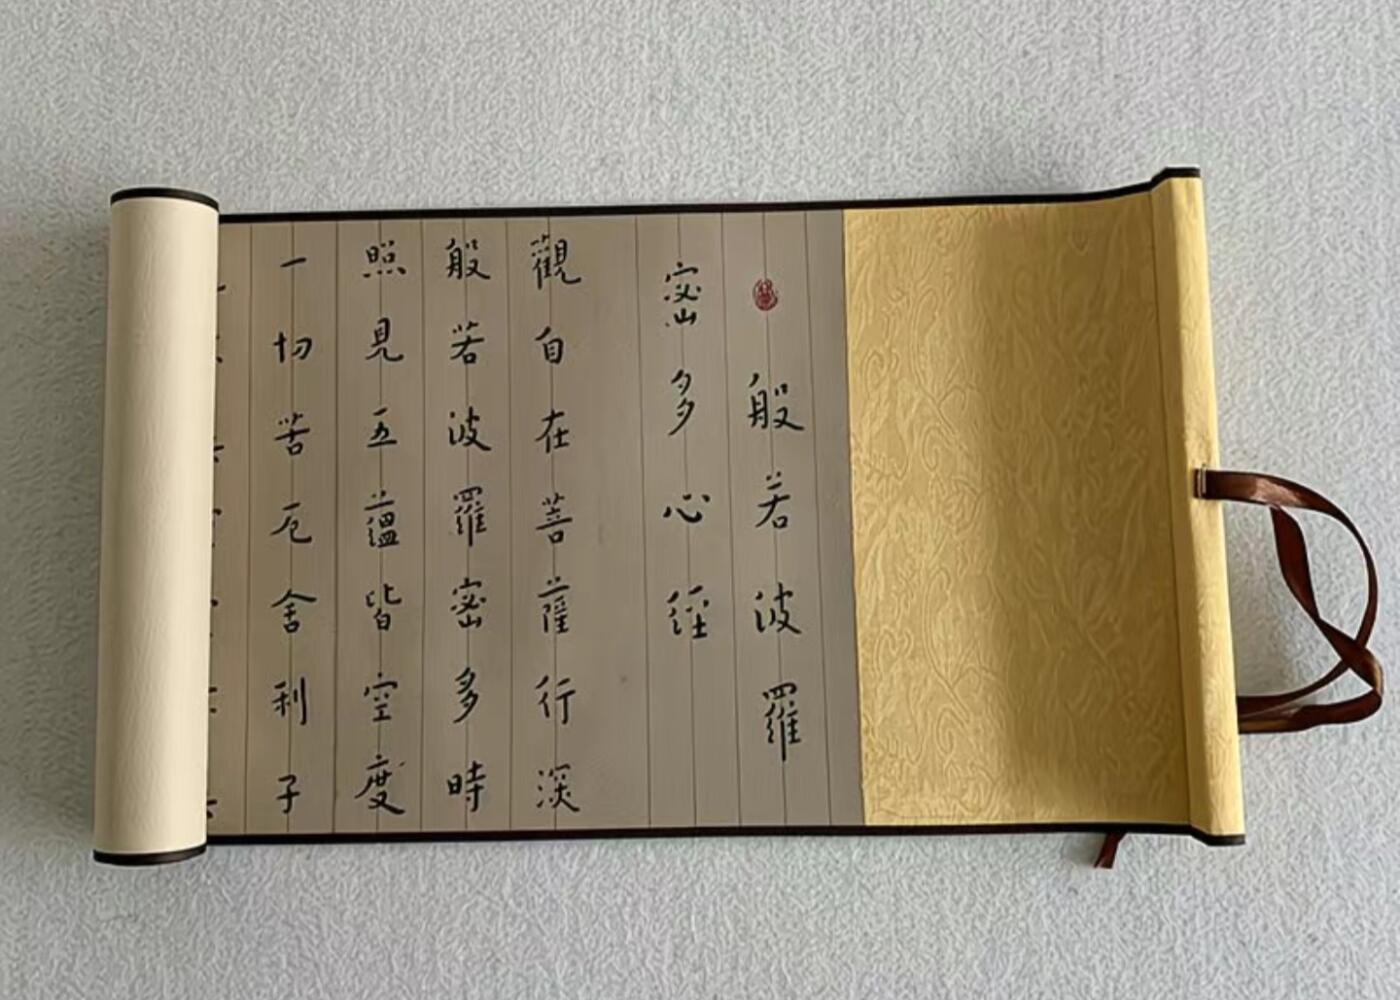 般若波羅
密多心經
觀自在菩薩行深
般若波羅密多時
照見五蘊皆空度
一切苦厄舍利子